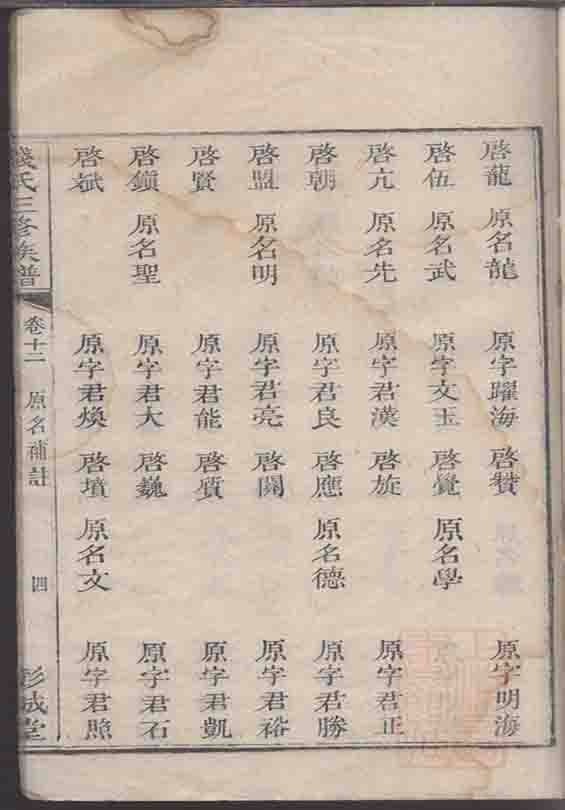 啓龍 原名龍 原字躍海 啓贊 原字明海
啓伍 原名武 原字文玉 啓覺 原名學
啓亢 原名先 原字君漢 啓旋 原字君正
啓朝 原字君良 啓應 原名德 原字君勝
啓盟 原名明 原字君亮 啓闓 原字君裕
啓賢 原字君能 啓質 原字君凱
啓鎖 原名聖 原字君大 啓巍 原字君石
啓斌 原字君煥 啓墳 原名文 原字君照
錢氏三修族譜 卷十二 原名補註 四 彭城堂